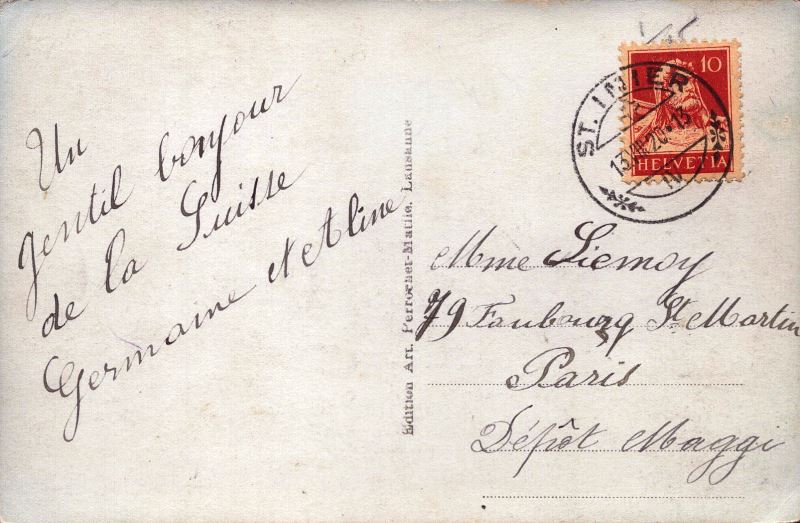 Un
gentil bonjour
de la Suisse
Germaine et Aline
Edition Art. Perrochet-Matile, Lausanne
10
HELVETIA
ST. IMIER
13.VII.20-13
IV
Mme
79 Faubourg St Martin
Paris
Dépôt Maggi